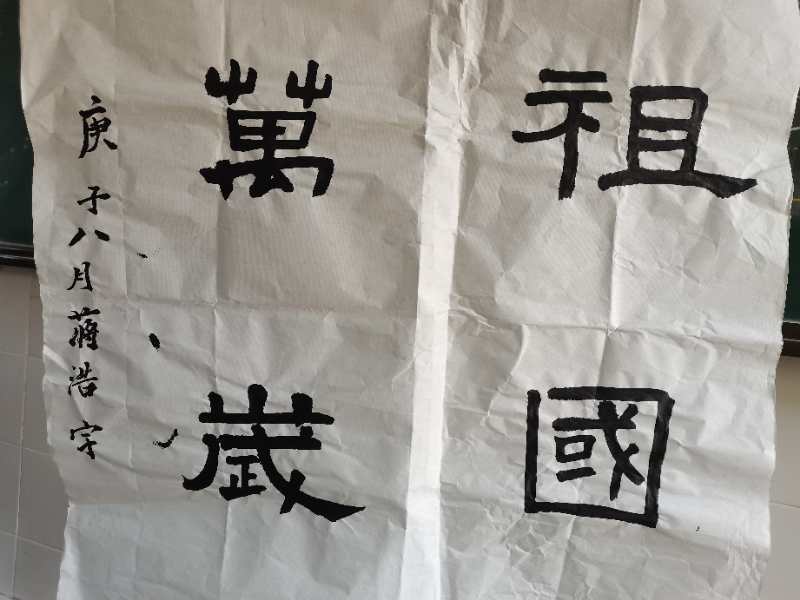 祖國
萬歲
庚子八月蔣浩宇